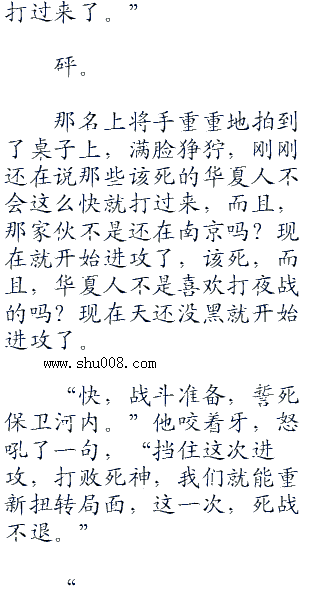 打过来了。”
砰。
那名上将手重重地拍到
了桌子上，满脸狰狞，刚刚
还在说那些该死的华夏人不
会这么快就打过来，而且，
那家伙不是还在南京吗？现
在就开始进攻了，该死，而
且，华夏人不是喜欢打夜战
的吗？现在天还没黑就开始
进攻了。
www.shu008.com
“快，战斗准备，誓死
保卫河内。”他咬着牙，怒
吼了一句，“挡住这次进
攻，打败死神，我们就能重
新扭转局面，这一次，死战
不退。”
“